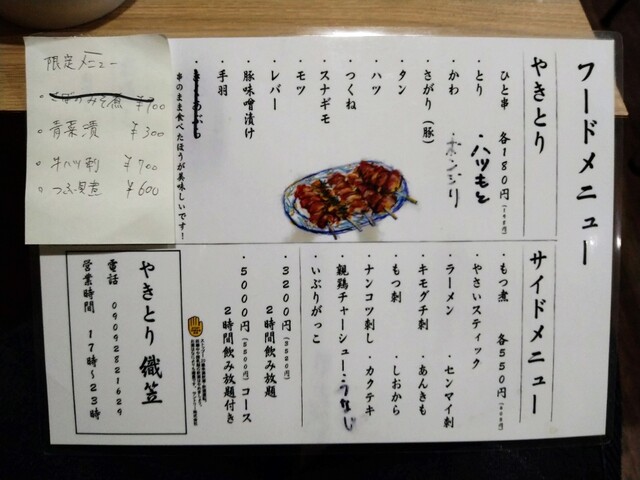 フードメニュー
やきとり
ひと串 各180円(198円)
・とり ・ハツもと
・かわ ・ボンジリ
・さがり(豚)
・タン
・ハツ
・つくね
・スナギモ
・モツ
・レバー
・豚味噌漬け
・手羽
串のまま食べたほうが美味しいです!
限定メニュー
・さばのみそ煮 ¥700
・青菜漬 ¥300
・牛ハツ刺 ¥700
・つぶ貝煮 ¥600
サイドメニュー
・もつ煮 各550円(605円)
・やさいスティック
・ラーメン ・センマイ刺
・キモグチ刺 ・あんきも
・もつ刺 ・しおから
・ナンコツ刺し ・カクテキ
・親鶏チャーシュー・うなじ
・いぶりがっこ
・3200円(3520円)
2時間飲み放題
・5000円(5500円)コース
2時間飲み放題付き
やきとり 織笠
電話 09092821629
営業時間 17時〜23時